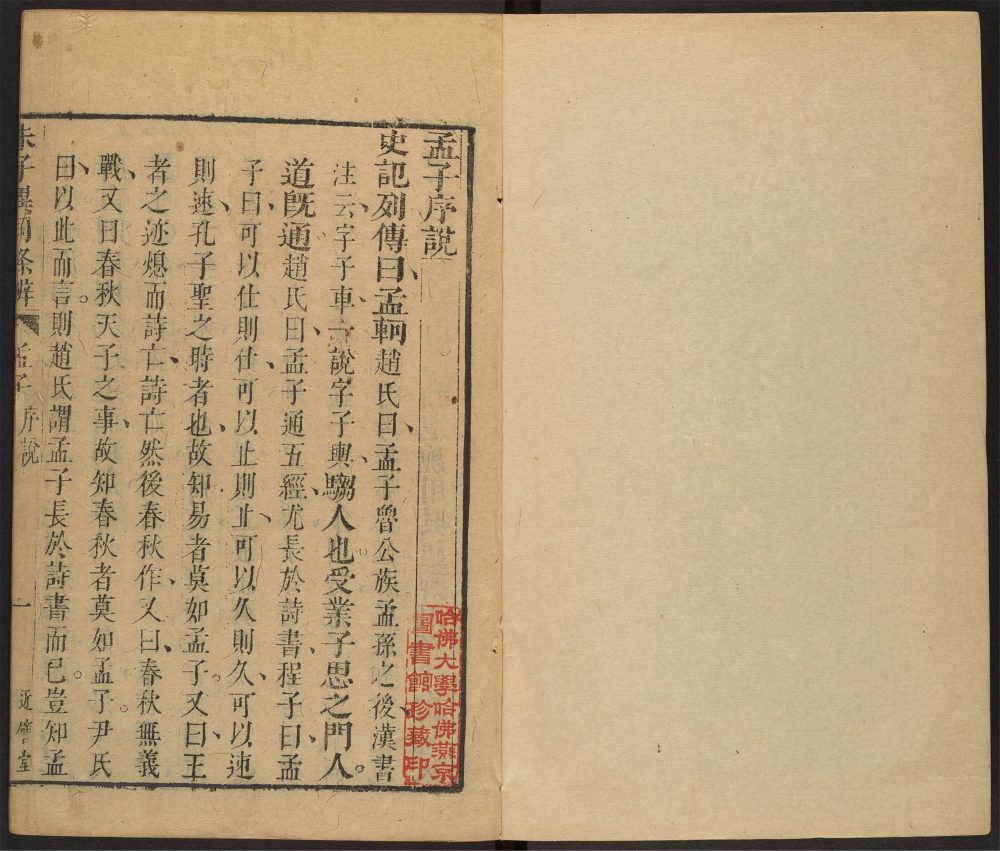 孟子序說
史記列傳曰孟軻趙氏曰孟子魯公族孟孫之後漢書
注云字子車一說字子輿騶人也受業子思之門人。
道旣通趙氏曰孟子通五經尤長於詩書程子曰孟
子曰可以仕則仕可以止則止可以久則久可以速
則速孔子聖之時者也故知易者莫如孟子。又曰王
者之迹熄而詩亡詩亡然後春秋作又曰春秋無義
戰又曰春秋天子之事故知春秋者莫如孟子。尹氏
曰以此而言。則趙氏謂孟子長於詩書而已。豈知孟
朱子異同条辨 孟子 序說 一 近譬堂
哈佛大學哈佛燕京
圖書館珍藏印